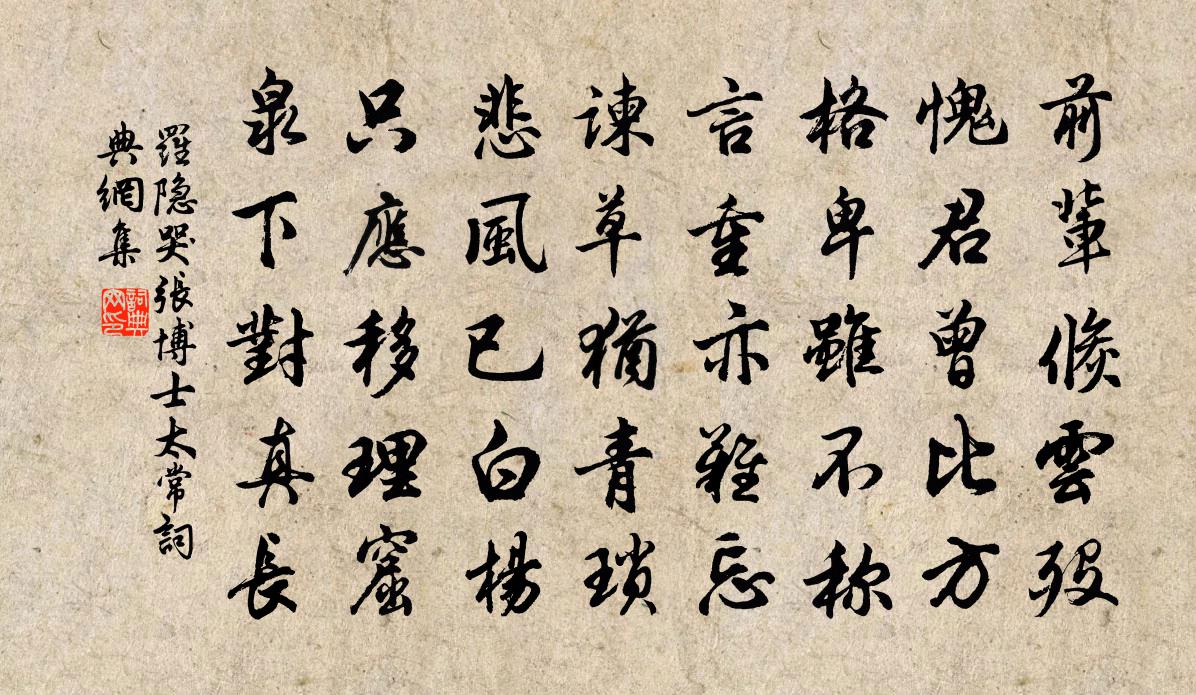 前輩倐雲歿
愧君曾比方
格卑雖不称
言重亦難忘
諫草猶青瑣
悲風已白楊
只應移理窟
泉下對真長
羅隐哭張博士太常詞
典網集
詞典
网印